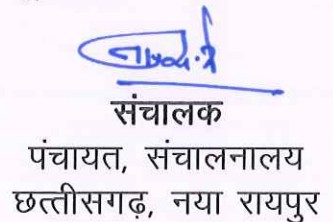 संचालक
पंचायत, संचालनालय
छत्तीसगढ़, नया रायपुर